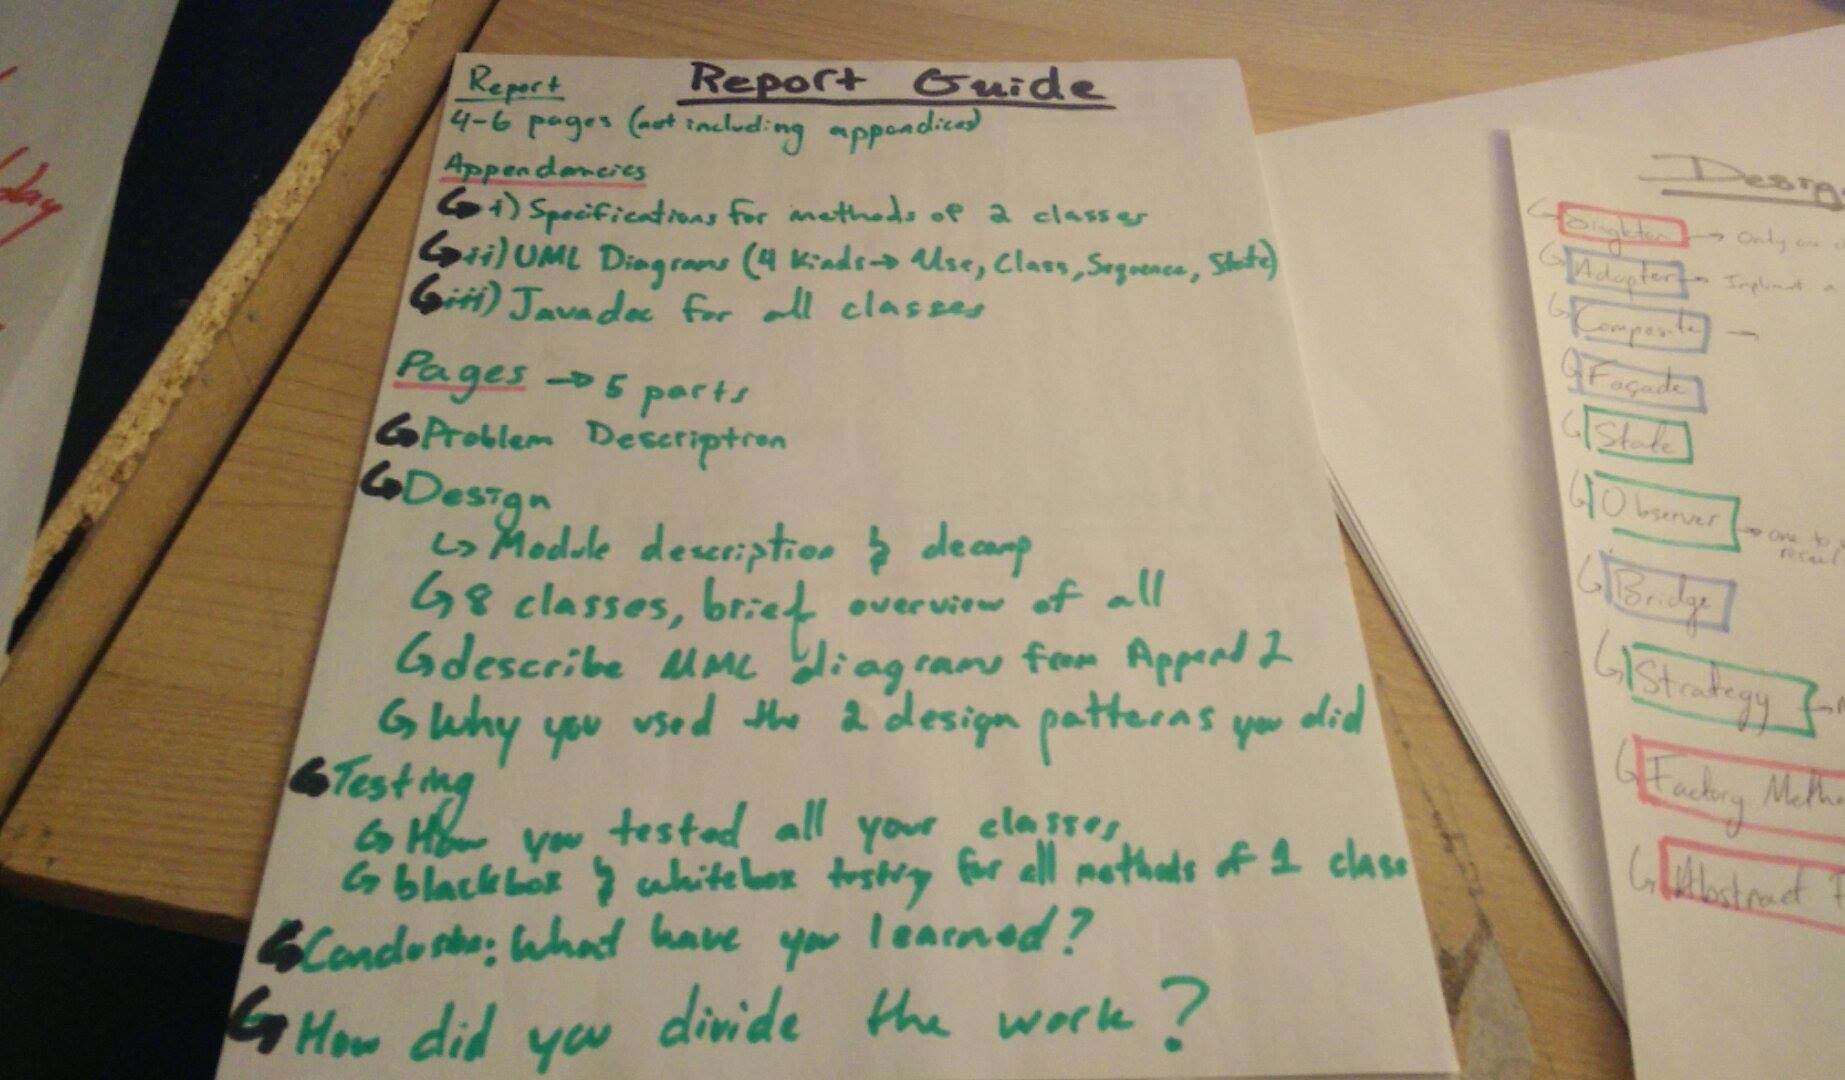 Report Guide
Report
4-6 pages (not including appendices)
Appendancies
i) Specifications for methods of 2 classes
ii) UML Diagrams (4 Kinds → Use, Class, Sequence, State)
iii) Javadoc for all classes
Pages → 5 parts
Problem Description
Design
Module description & decomp
8 classes, brief overview of all
describe UML diagrams from Append 2
Why you used the 2 design patterns you did
Testing
How you tested all your classes
blackbox & whitebox testing for all methods of 1 class
Conclusion: What have you learned?
How did you divide the work?
day
Desig
Singleton → Only
Adapter → Implement a
Composite →
Façade
State
Observer → one to
Bridge
Strategy →
Factory Meth
Abstract F